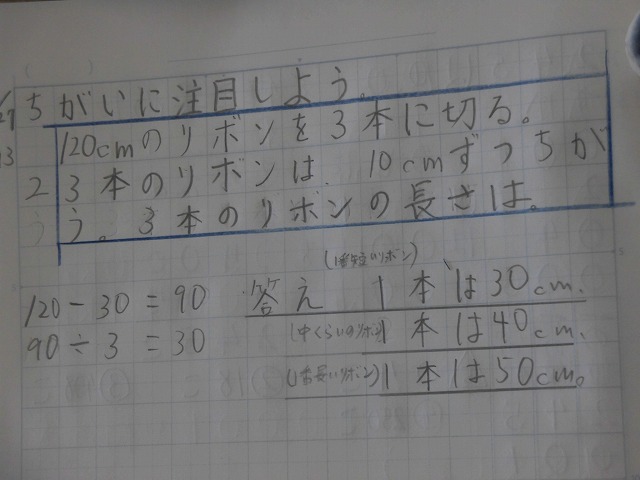 ちがいに注目しよう。
120cmのリボンを3本に切る。
2 3本のリボンは、10cmずつちが
う。3本のリボンの長さは。
(1番短いリボン)
120-30=90 答え 1本は30cm.
90÷3=30 (中くらいのリボン)1本は40cm.
(1番長いリボン)1本は50cm。